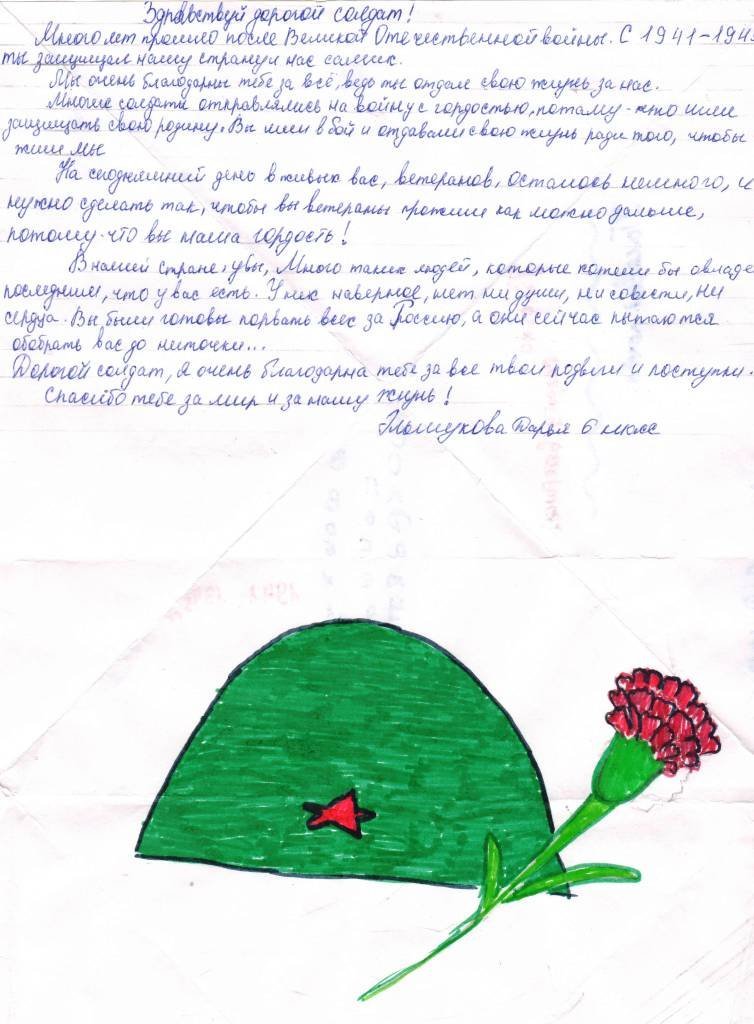 Здравствуй дорогой солдат!
Много лет прошло после Великой Отечественной войны. С 1941-194
ты защищал нашу страну и нас самих.
Мы очень благодарны тебе за всё, ведь ты отдал свою жизнь за нас.
Многие солдаты отправлялись на войну с гордостью, потому-что шли
защищать свою родину. Вы шли в бой и отдавали свою жизнь ради того, чтобы
жили мы
На сегодняшний день в живых вас, ветеранов, осталось немного, и
нужно сделать так, чтобы вы ветераны прожили как можно дальше,
потому-что вы наша гордость!
В нашей стране, увы, Много таких людей, которые хотели бы овладе
последним, что у вас есть. У них наверное, нет ни души, ни совести, ни
сердца. Вы были готовы порвать всех за Россию, а они сейчас пытаются
обобрать вас до ниточки...
Дорогой солдат, я очень благодарна тебе за все твои подвиги и поступки.
Спасибо тебе за мир и за нашу жизнь!
Дарья 6 класс